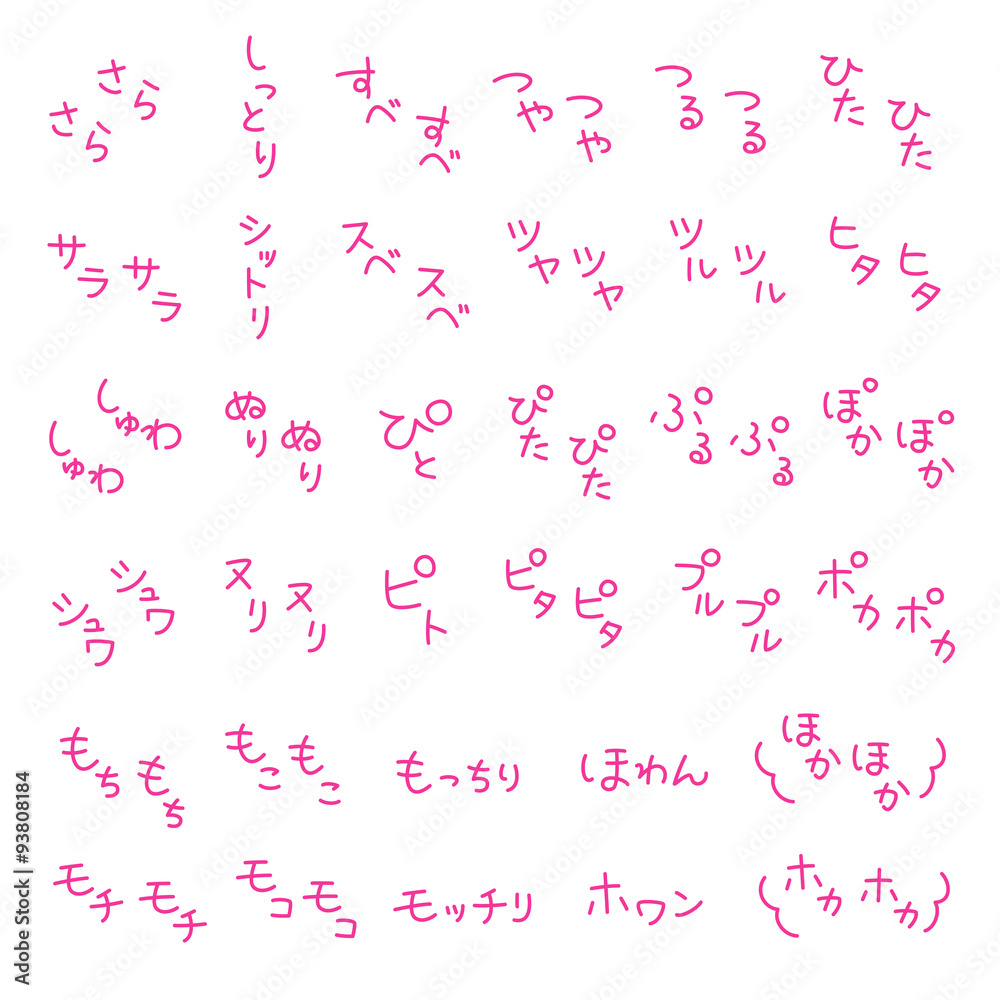 さらさら しっとり すべすべ つやつや つるつる ひたひた
サラサラ シットリ スベスベ ツヤツヤ ツルツル ヒタヒタ
しゅわしゅわ ぬりぬり ぴと ぴたぴた ぷるぷる ぽかぽか
シュワシュワ ヌリヌリ ピト ピタピタ プルプル ポカポカ
もちもち もこもこ もっちり ほわん ほかほか
モチモチ モコモコ モッチリ ホワン ホカホカ
Adobe Stock | #93808184